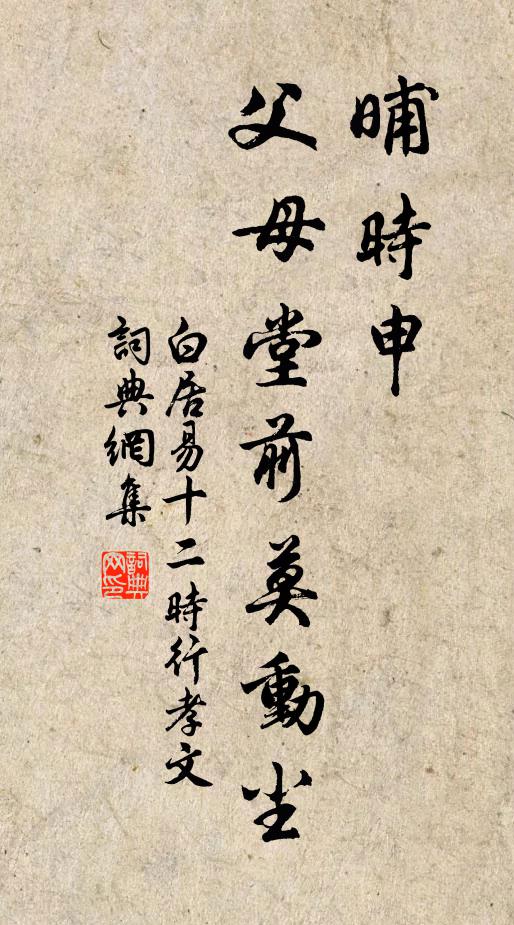 晡時申
父母堂前莫動尘
白居易十二時行孝文
詞典網集
詞典网印